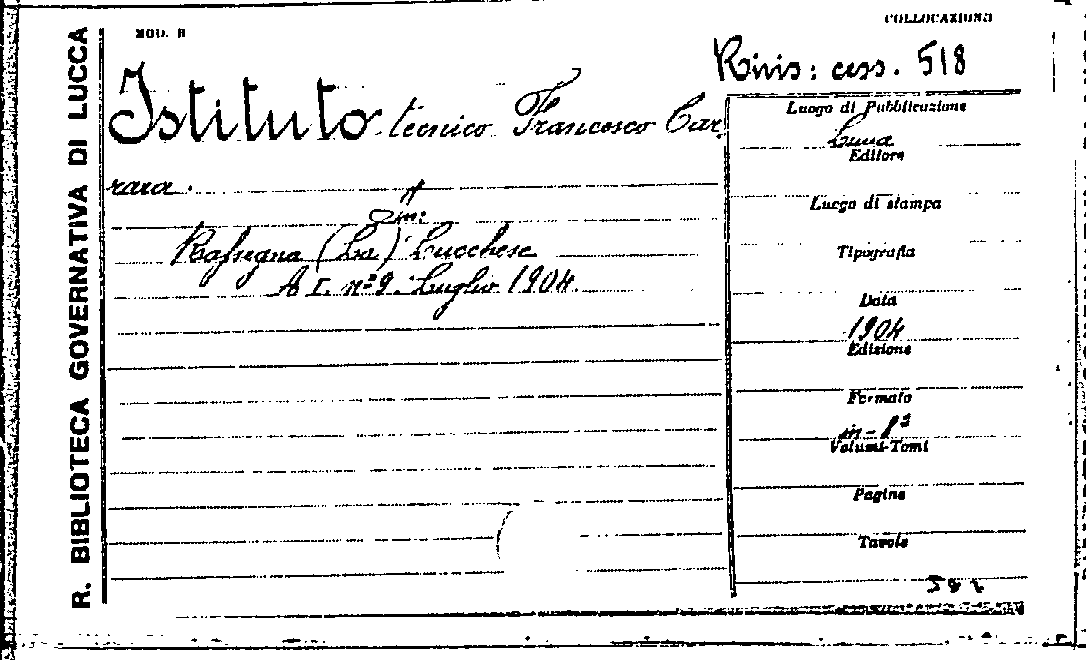 R. BIBLIOTECA GOVERNATIVA DI LUCCA
MOD. B
COLLOCAZIONE
Rivis: cess. 518
Istituto tecnico Francesco Car
rara.
in:
Rassegna (La) Lucchese
A I. nº 9. Luglio 1904.
Luogo di Pubblicazione
Lucca
Editore
Luogo di stampa
Tipografia
Data
1904
Edizione
Formato
in-8º
Volumi-Tomi
Pagine
Tavole